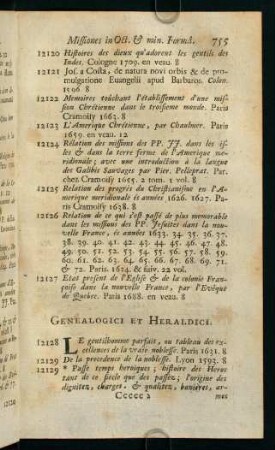 Missiones in Oct. & min. Formâ. 755
12120 Histoires des dieux qu'adorent les gentils des
Indes. Cologne 1709. en veau. 8
12121 Jos. a Costa, de natura novi orbis & de pro-
mulgatione Euangelii apud Barbaros. Colon.
1596 8
12122 Memoires touchant l'établissement d'une mis-
sion Chrétienne dans le troisieme monde. Paris
Cramoisy 1663. 8
12123 L'Amerique Chrétienne, par Chaulmer. Paris
1659. en veau. 12
12124 Relation des missions des PP. JJ. dans les is-
les & dans la terre ferme de l'Amerique me-
ridionale; avec une introduction à la langue
des Galibis Sauvages par Pier. Pelleprat. Par.
chez. Cramoisy 1655. 2 tom. 1 vol. 8
12125 Relation des progrès du Christianisme en l'A-
merique meridionale és années 1626. 1627. Pa-
ris Cramoisy 1638. 8
12126 Relation de ce qui s'est passé de plus memorable
dans les missions des PP. Jesuites dans la nou-
velle France, és années 1633. 34. 35. 36. 37.
38. 39. 40. 41. 42. 43. 44. 45. 46. 47. 48.
49. 50. 51. 52. 53. 54. 55. 56. 57. 58. 59.
60. 61. 62. 63. 64. 65. 66. 67. 68. 69. 71.
& 72. Paris. 1634. & suiv. 22 vol.
12127 Etat present de l'Eglise & de la colonie Fran-
çoise dans la nouvelle France, par l'Evêque
de Quebec. Paris 1688. en veau. 8
GENEALOGICI ET HERALDICI.
12128 LE gentilhomme parfait, ou tableau des ex-
cellences de la vraie noblesse. Paris 1631. 8
12129 De la precedence de la noblesse. Lyon 1592. 8
12129 * Passe temps heroiques; histoire des Heros
tant de ce siecle que des passez; l'origine des
dignitez, charges, & qualitez, banieres, ar-
Ccccc 2 mes